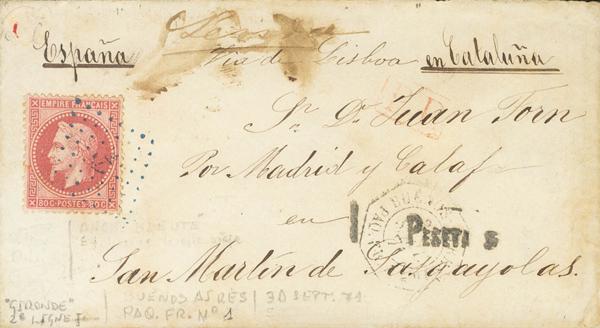 España
Via de Lisboa
en Cataluña
Sr. Dn. Juan Torn
Por Madrid y Calaf
en
San Martin de Sasgayolas.
EMPIRE FRANÇAIS
80 C · POSTES · 80 C
1 PESETAS
"GIRONDE"
2e LIGNE J
BUENOS AIRES
PAQ. FR. Nº 1
30 SEPT. 71